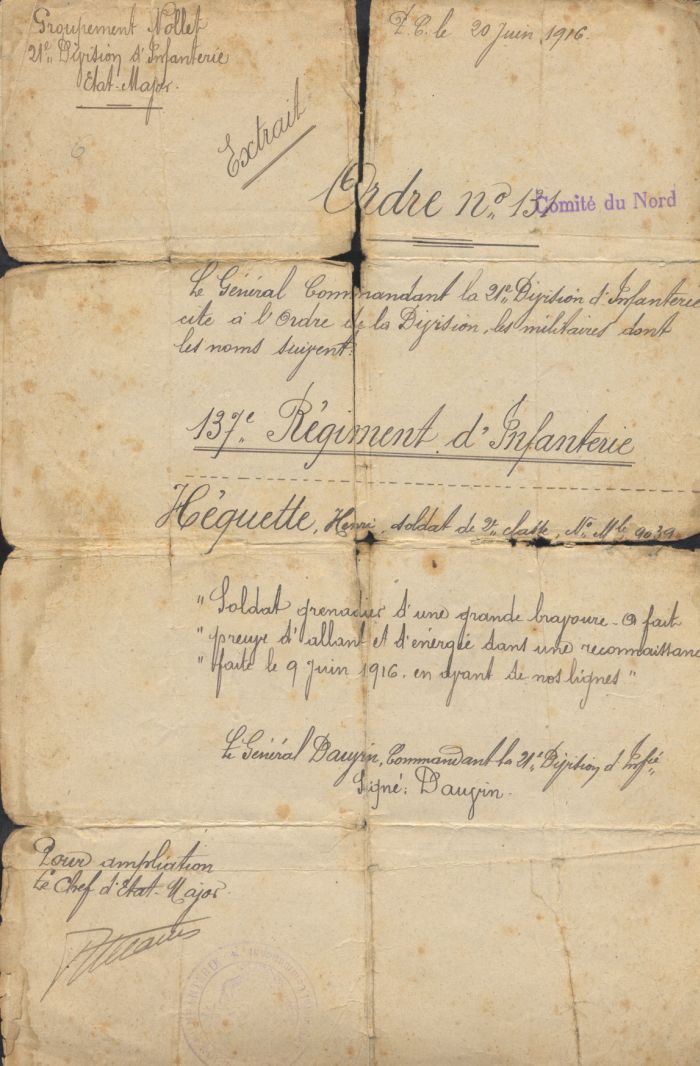 Groupement Nollet
21e Division d'Infanterie
Etat-Major.
P.C. le 20 Juin 1916.
6
Extrait
Ordre no 131
Comité du Nord
Le Général Commandant la 21e Division d'Infanterie
cite à l'Ordre de la Division, les militaires dont
les noms suivent:
137e Régiment d'Infanterie
Héquette, Henri, soldat de 2e classe, No Mle 9039
"Soldat grenadier d'une grande bravoure - a fait
"preuve d'allant et d'énergie dans une reconnaissance
"faite le 9 Juin 1916. en avant de nos lignes"
Le Général Dauvin, Commandant la 21e Division d'Infie
Signé: Dauvin.
Pour ampliation
Le Chef d'Etat-Major.